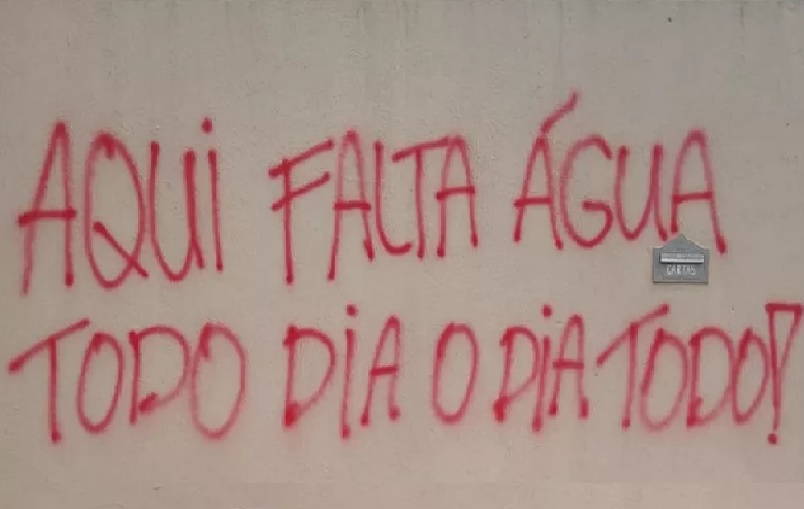 AQUI FALTA ÁGUA
CARTAS
TODO DIA O DIA TODO!